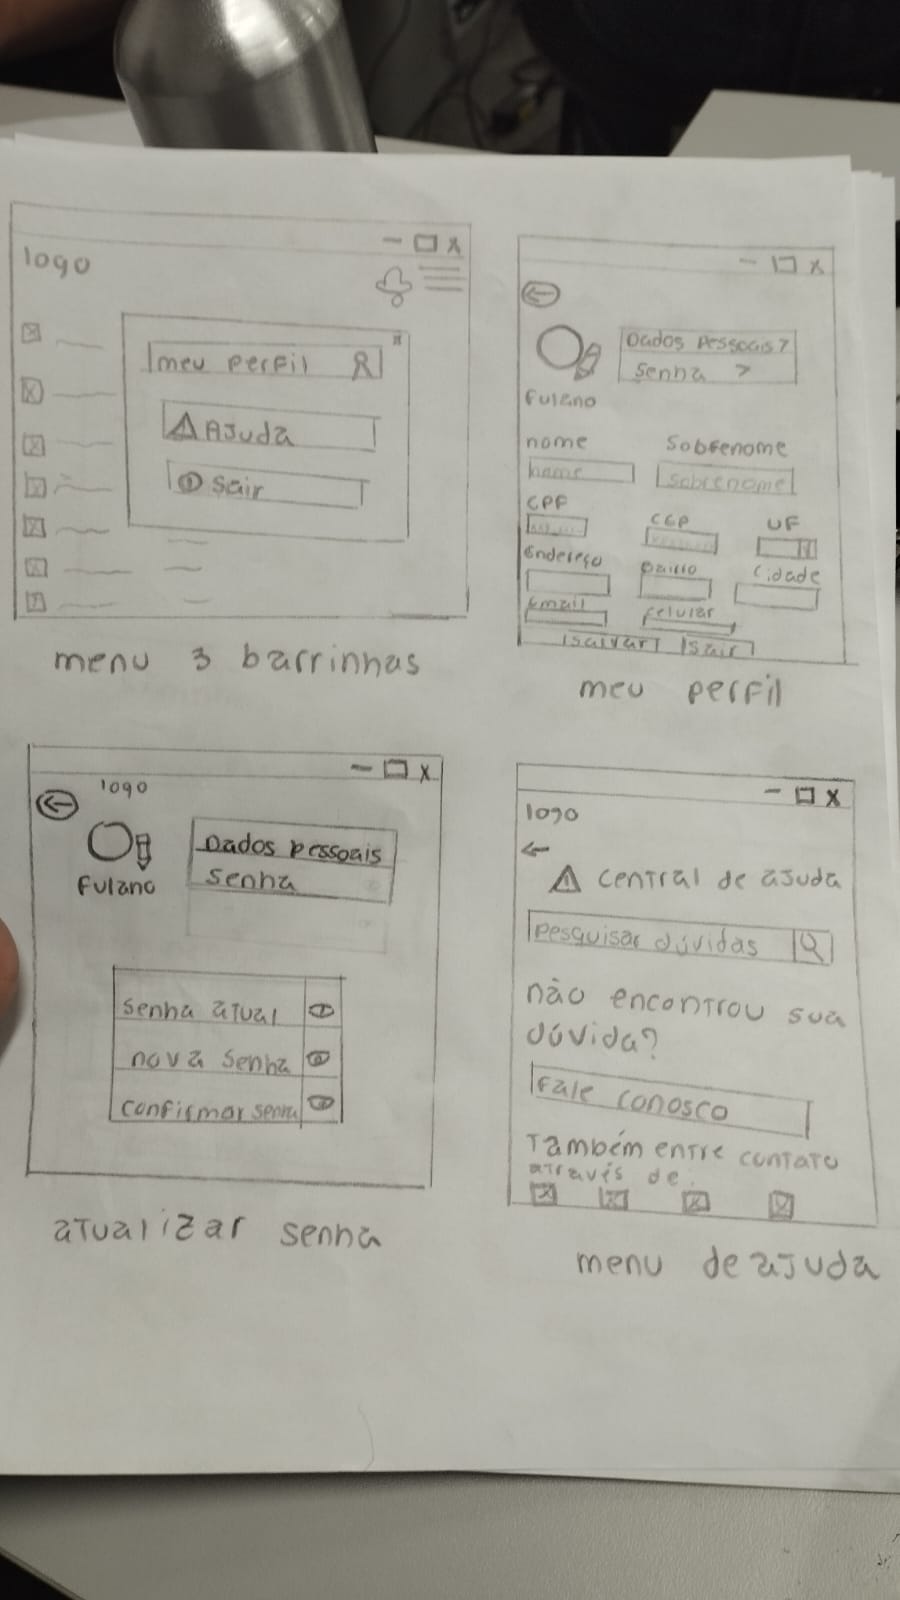 logo
meu perfil
Ajuda
sair
menu 3 barrinhas
Dados pessoais >
Senha >
fulano
nome
Sobrenome
nome
Sobrenome
CPF
CEP
UF
Endereço
bairro
Cidade
Email
celular
salvar sair
meu perfil
logo
fulano
Dados pessoais
senha
senha atual
nova senha
confirmar senha
atualizar senha
logo
central de ajuda
pesquisar dúvidas
não encontrou sua
dúvida?
fale conosco
Também entre contato
através de:
menu de ajuda